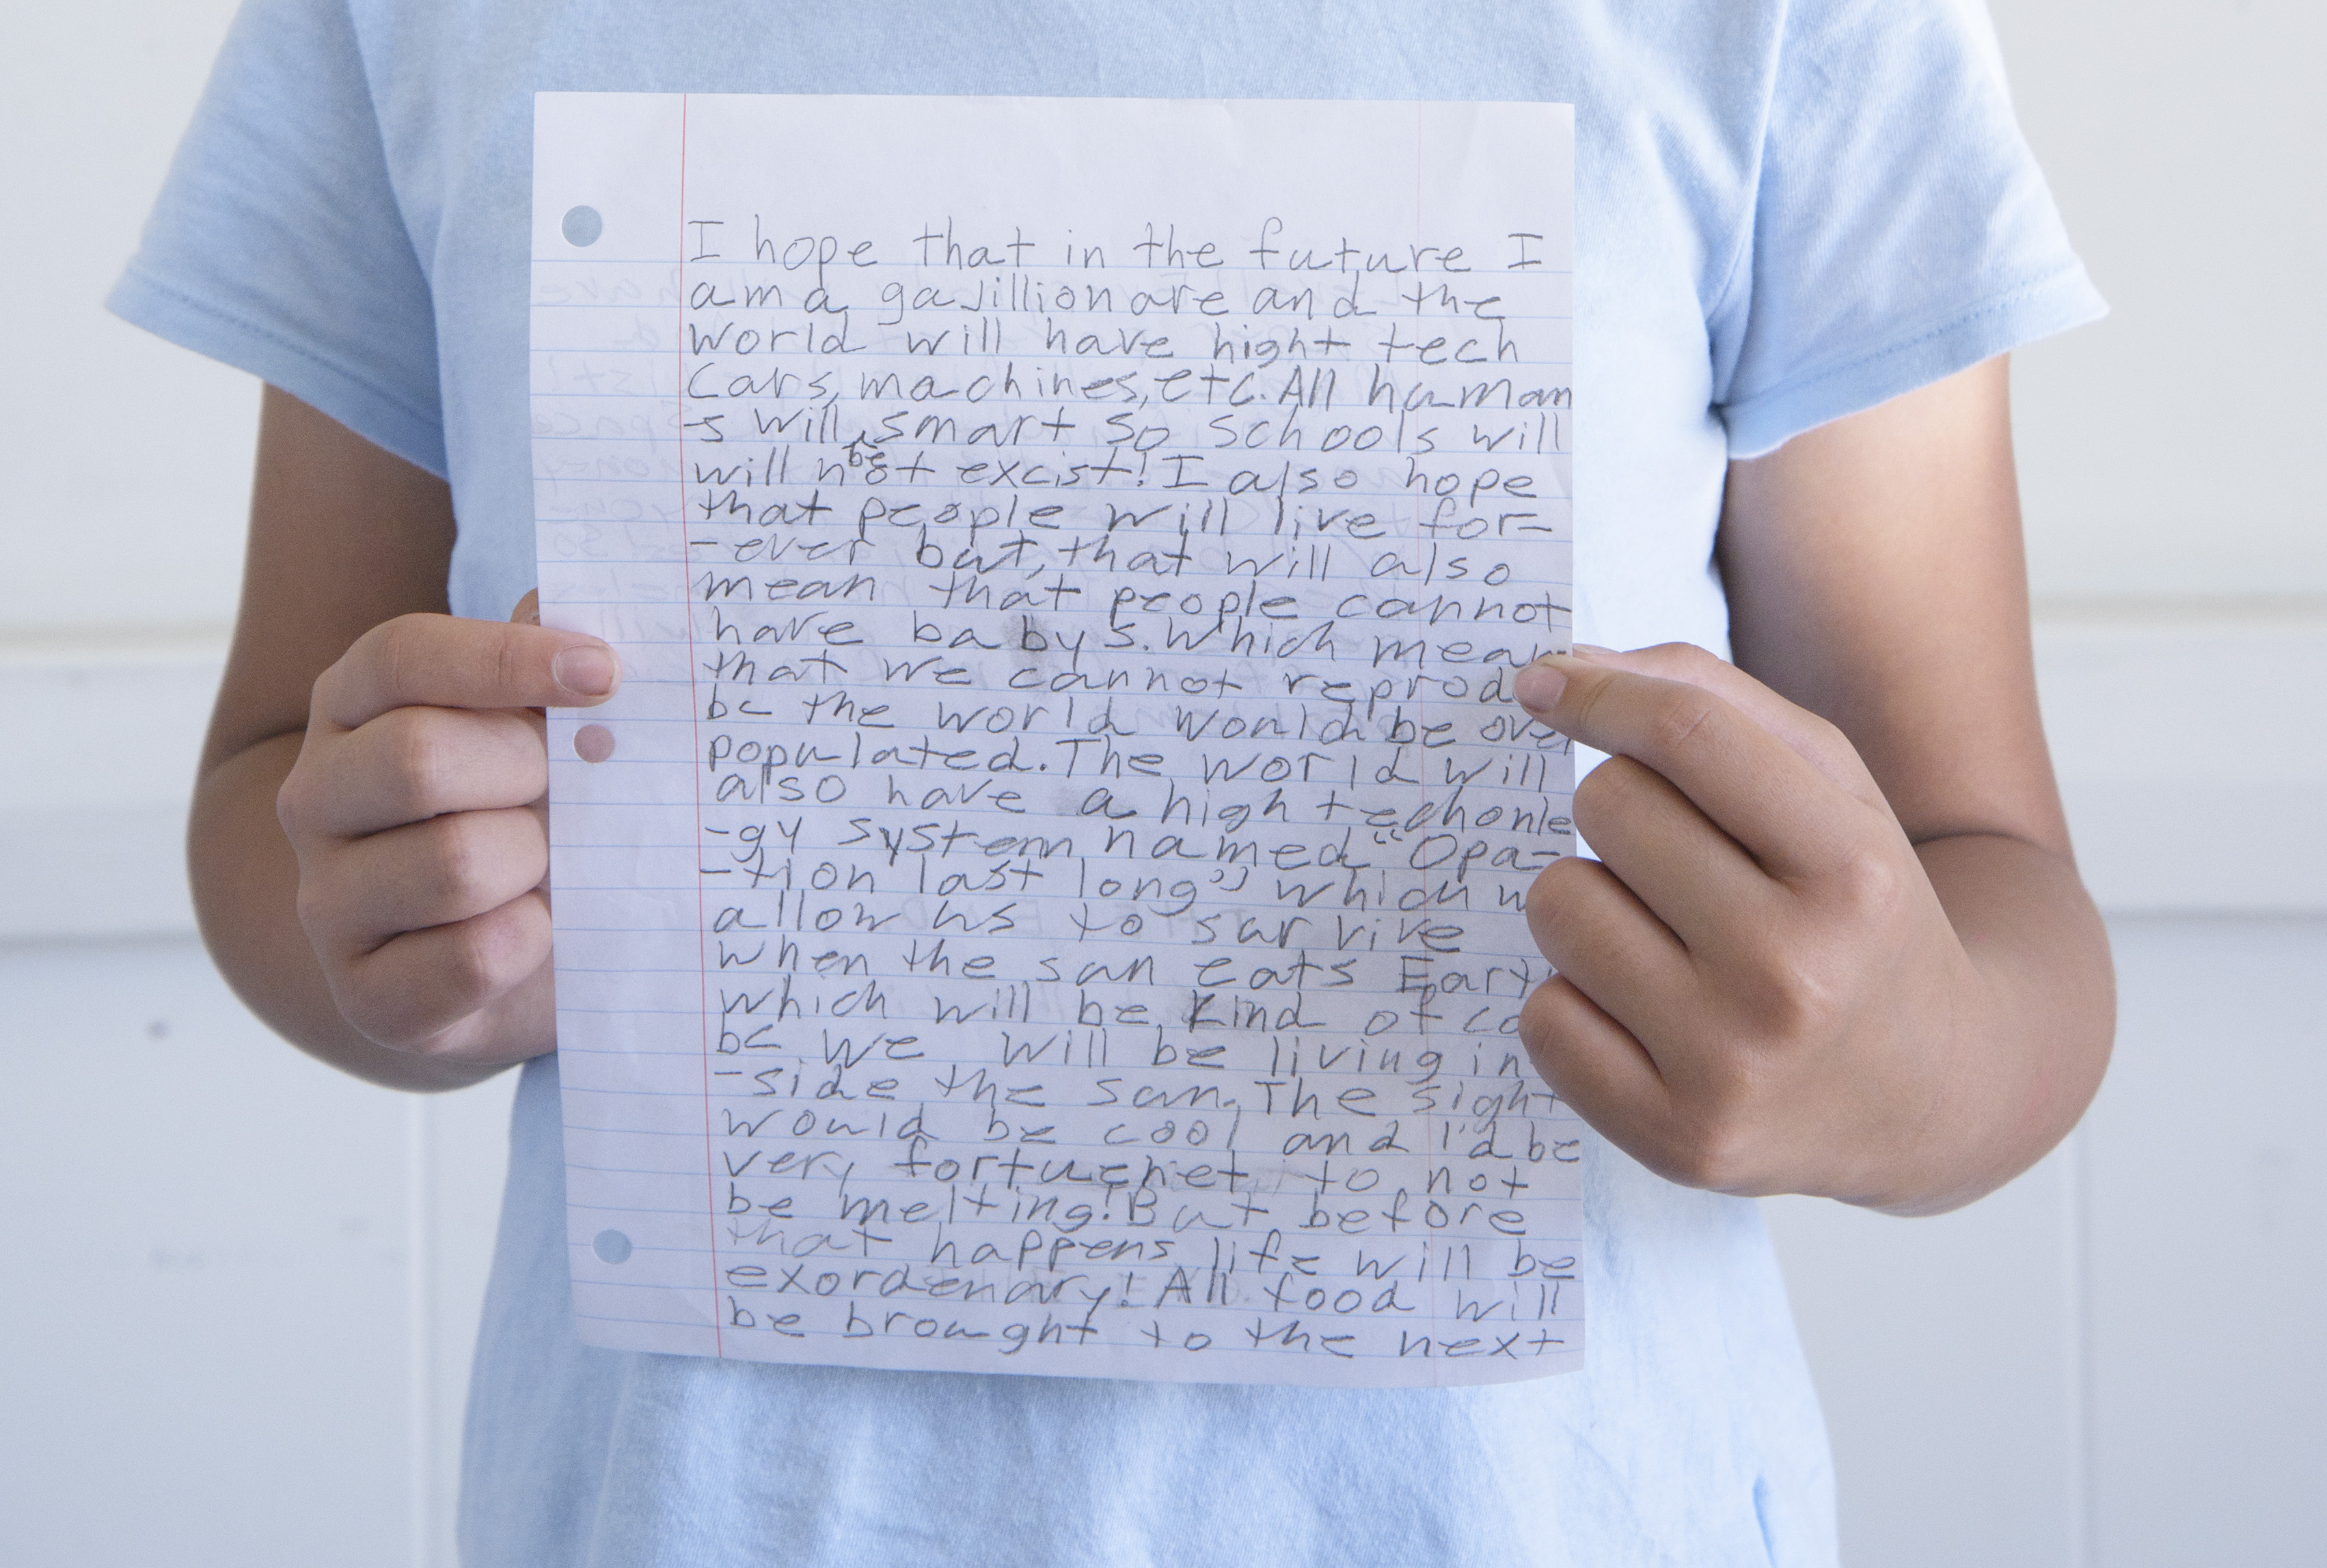 I hope that in the future I
am a gajillionare and the
world will have hight tech
Cars, machines, etc. All human
-s will be smart so schools will
will not excist! I also hope
that people will live for-
-ever but, that will also
mean that people cannot
have babys. Which mean
that we cannot
bc the world would be over
populated. The world will
also have a high techonle
-gy system named "Opa-
-tion last long" which
allow us to survive
when the sun eats Earth
which will be kind of
bc we will be living in
-side the sun. The sight
would be cool and I'd be
very fortuenet to not
be melting! But before
that happens life will be
exordenary! All food will
be brought to the next